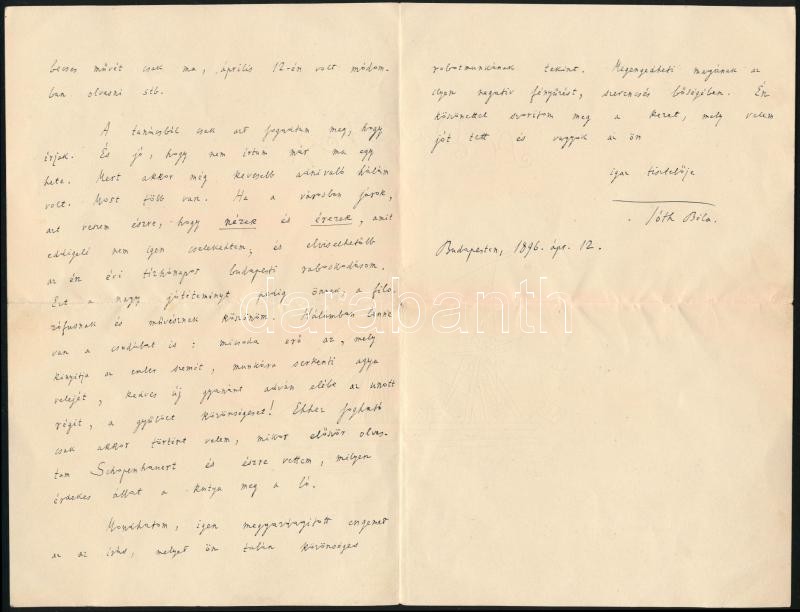 becses művét csak ma, április 12-én volt módom-
ban olvasni stb.
A tanácsból csak azt fogadtam meg, hogy
írjak. És jó, hogy nem írtam már ma egy
hete. Mert akkor még kevesebb nálam való hálám
volt. Most több van. Ha a városban járok,
azt veszem észre, hogy nézek és érezek, amit
eddigelé nem igen cselekedtem, és elviselhetőbb
az én évi tízhónapos budapesti raboskodásom.
Ezt a nagy jótéteményt pedig önnek, a filo-
zófusnak és művésznek köszönöm. Hálámban benne
van a csodálat is: micsoda erő az, mely
kinyitja az ember szemét, munkára serkenti agya
velejét, kedves új gyanánt adván elébe az unott
régit, a gyűlölt közönségeset! Ehhez fogható
csak akkor történt velem, mikor először olvas-
tam Schopenhauert és észre vettem, milyen
érdekes állat a kutya meg a ló.
Mondhatom, igen megvilágított engemet
az az írás, melyet ön talán közönséges
robotmunkának tekint. Megengedheti magának az
ilyen negatív fényűzést, szerencsés bőségében. Én
köszönettel szorítom meg a kezet, mely velem
jót tett és vagyok az ön
igaz tisztelője
Tóth Béla.
Budapesten, 1896. ápr. 12.
darabanth